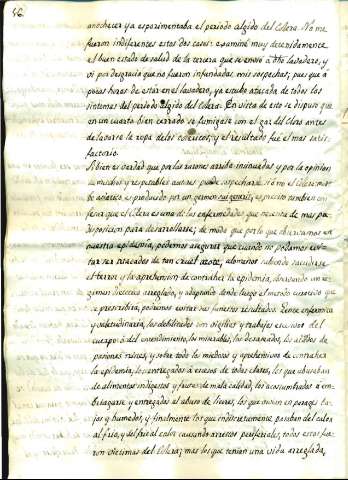 46.
anochecer ya esperimentaba el periodo algido del Colera. No me
fueron indiferentes estos dos casos: examiné muy detenidamente
el buen estado de salud de la tercera que se envió a otro lavadero, y
vi por desgracia que no fueron infundadas mis sospechas; pues que á
pocas horas de estár en el lavadero, ya estubo atacada de todos los
sintomas del periodo algido del Colera. En vista de esto se dispuso que
en un cuarto bien cerrado se fumigase con el gaz del Cloro antes
de lavarse la ropa de los colericos; y el resultado fué el mas satis
factorio.
Si bien es verdad que por las razones arriba insinuadas y por la opinion
de muchos y respetables autores puede sospecharse si ó no el Colera mor
bo asiatico es producido por un germen sui generis, es preciso tambien con
fesar que el Colera es una de las enfermedades que necesita de mas pre
disposicion para desarrollarse; de modo que por lo que observamos en
nuestra epidemia, podemos asegurar que cuando no podamos evi
tar ser atacados de tan cruel azote, alomenos sabiendo sacudirse
el terror y la aprehension de contraher la epidemia, observando un re
gimen dietetico arreglado, y adoptando desde luego el metodo curativo que
se prescribirá, podremos evitar sus funestos resultados. Los enfermizos
y valetudinarios, los debilitados con vigilias y trabajos escesivos del
cuerpo ó del entendimiento, los miserables, los desaseados, los
pasiones tristes, y sobre todo los miedosos y aprehensivos de contraher
la epidemia, los entregados á escesos de todas clases, los que abusaban
de alimentos indigestos y frutas de mala calidad, los acostumbrados á em
briagarse y entregados al abuso de licores, los que vivian en parages ba
jos y humedos, y finalmente los que indiscretamente pasaban del calor
al frio, y del frio al calor causando arrestos perifericos, todos estos fue
ron victimas del Colera; mas los que tenian una vida arreglada,